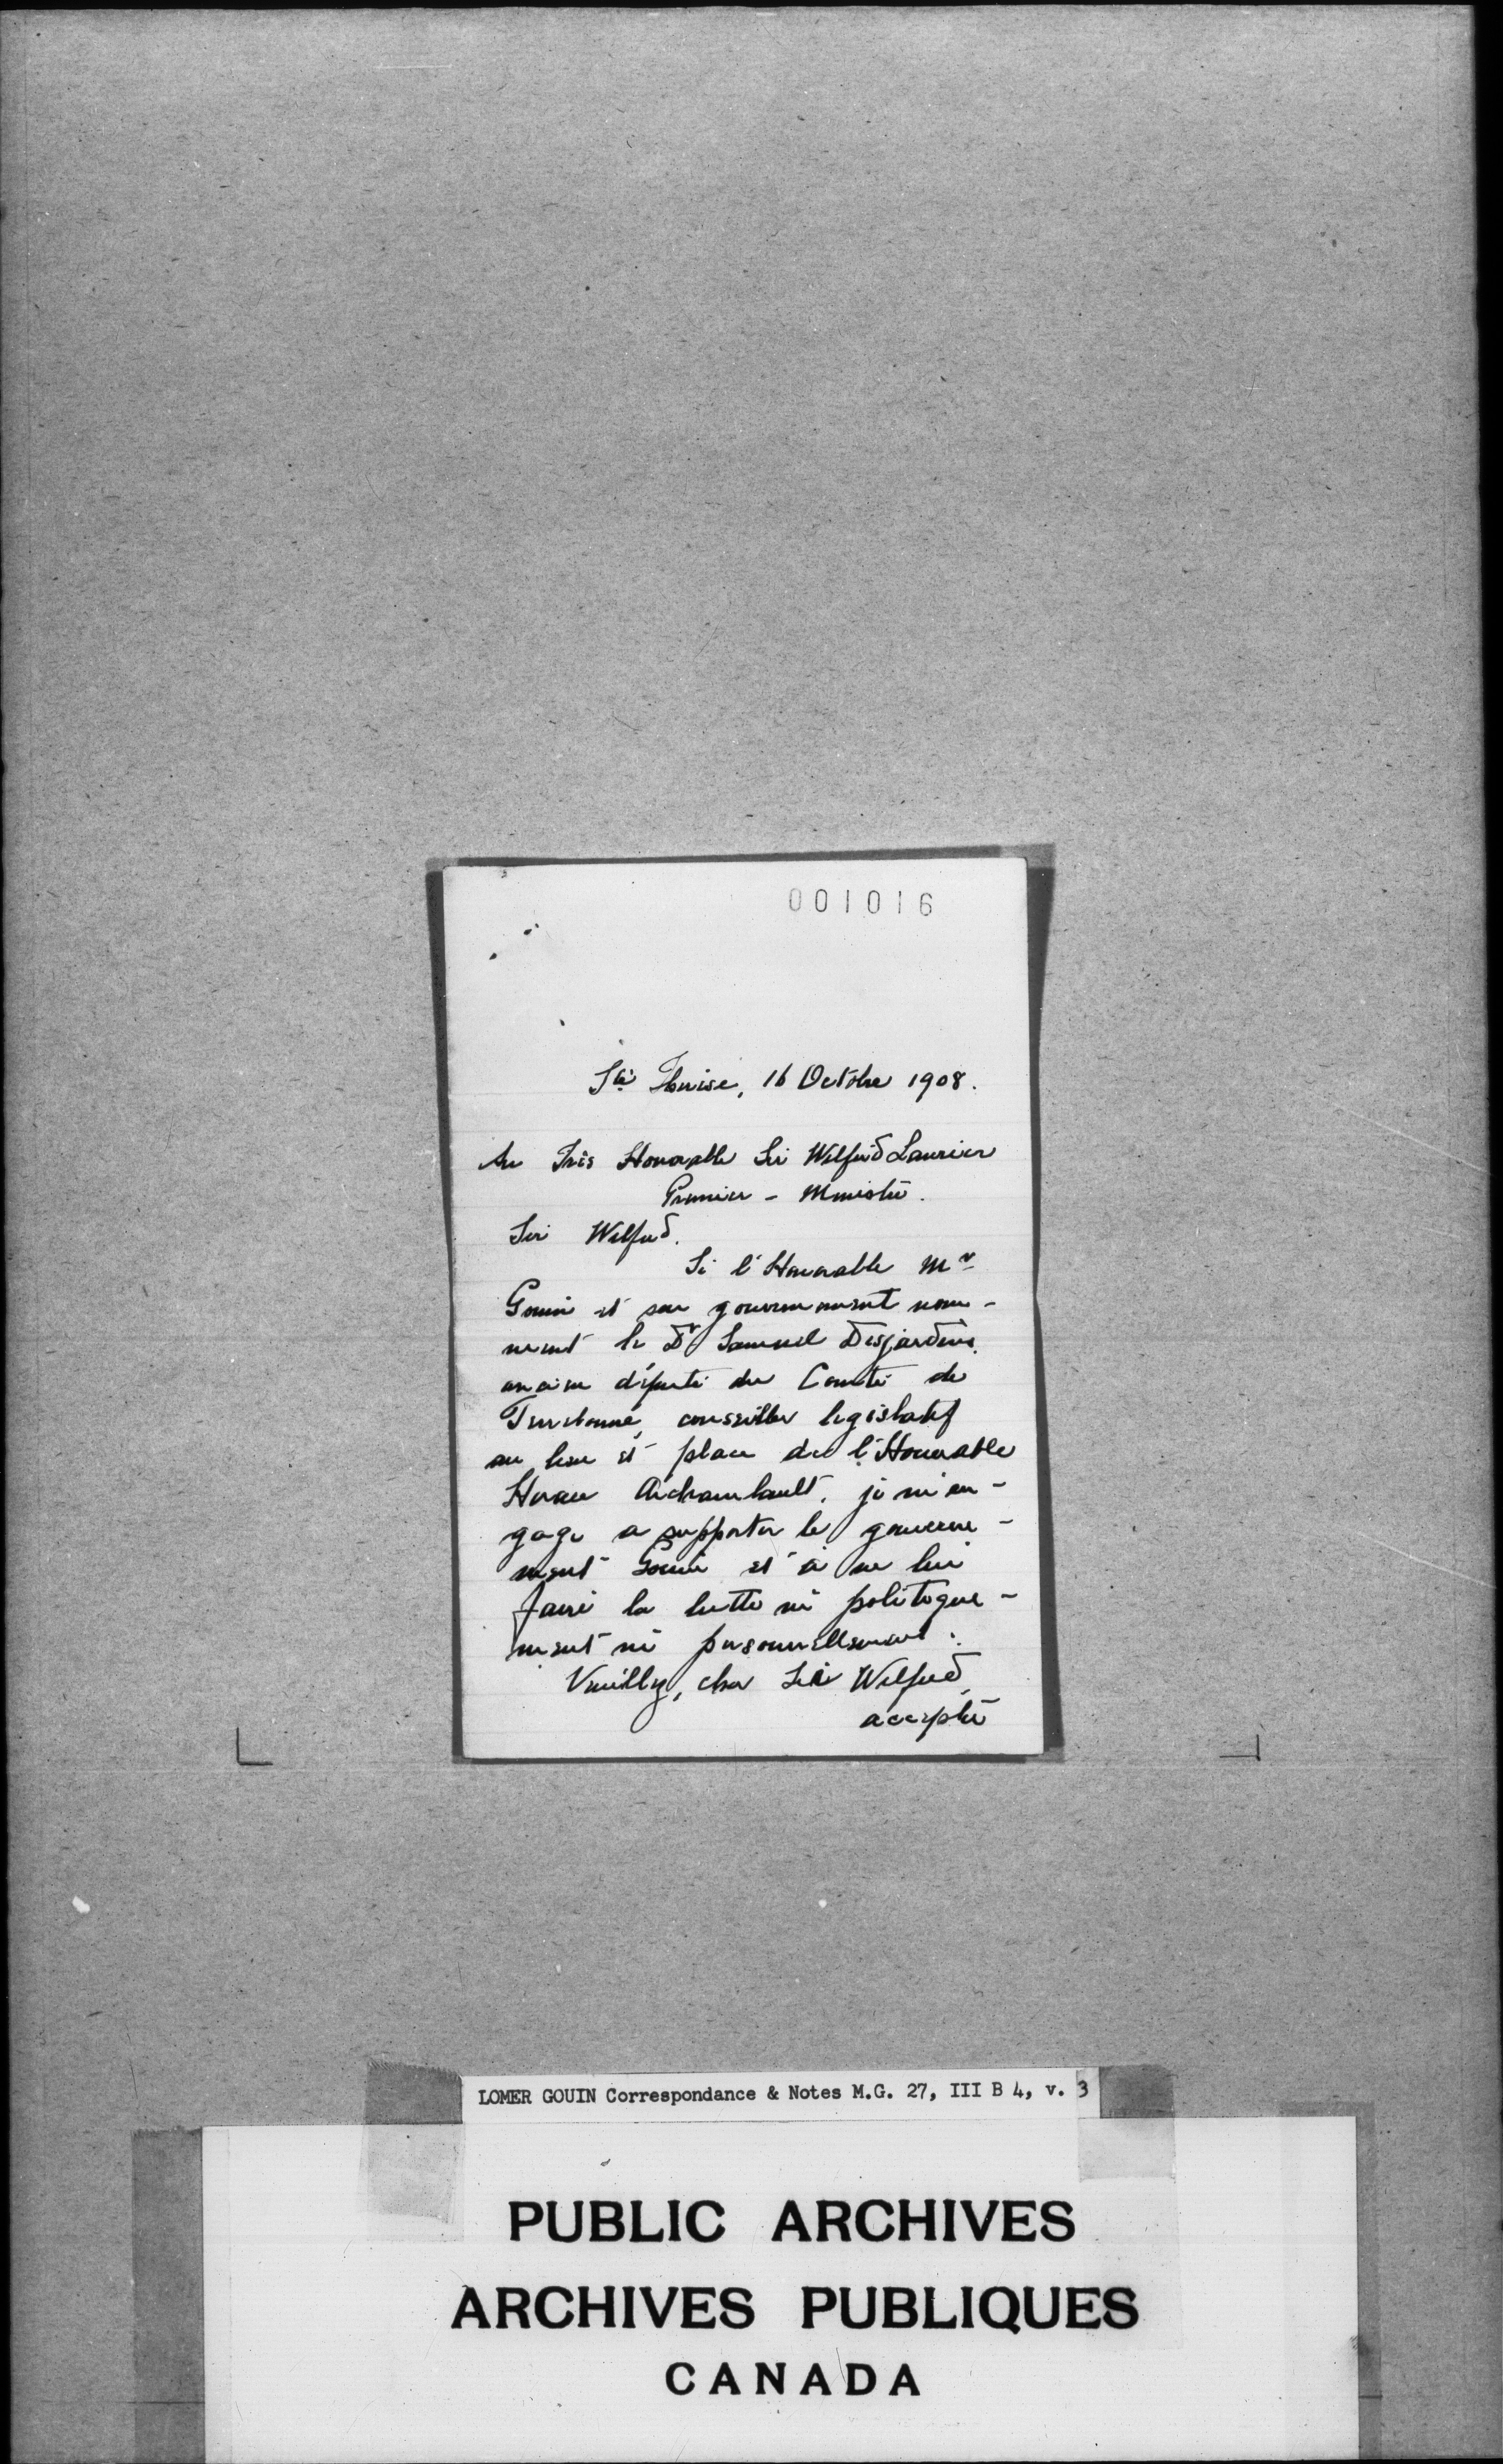 001016
Ste Louise, 16 Octobre 1908.
Au Très Honorable Sir Wilfrid Laurier
Premier - Ministre.
Sir Wilfrid.
Si l'Honorable Mr
Gouin et son gouvernement nom-
ment le Dr Samuel Desjardins,
ancien député du Comté de
Terrebonne, conseiller legislatif
au lieu et place de l'Honorable
Horace Archambault, je m'en-
gage a supporter le gouverne-
ment Gouin et à ne lui
faire la lutte ni politique-
ment ni personnellement.
Veuillez, cher Sir Wilfrid,
accepter
LOMER GOUIN Correspondance & Notes M.G. 27, III B 4, v. 3
PUBLIC ARCHIVES
ARCHIVES PUBLIQUES
CANADA